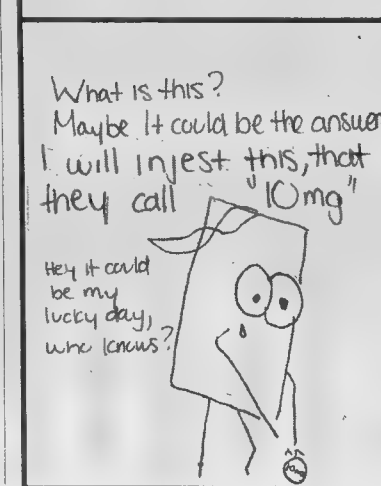 What is this?
Maybe It could be the answer
I will injest this, that
they call "10mg"
Hey it could
be my
lucky day,
who knows?